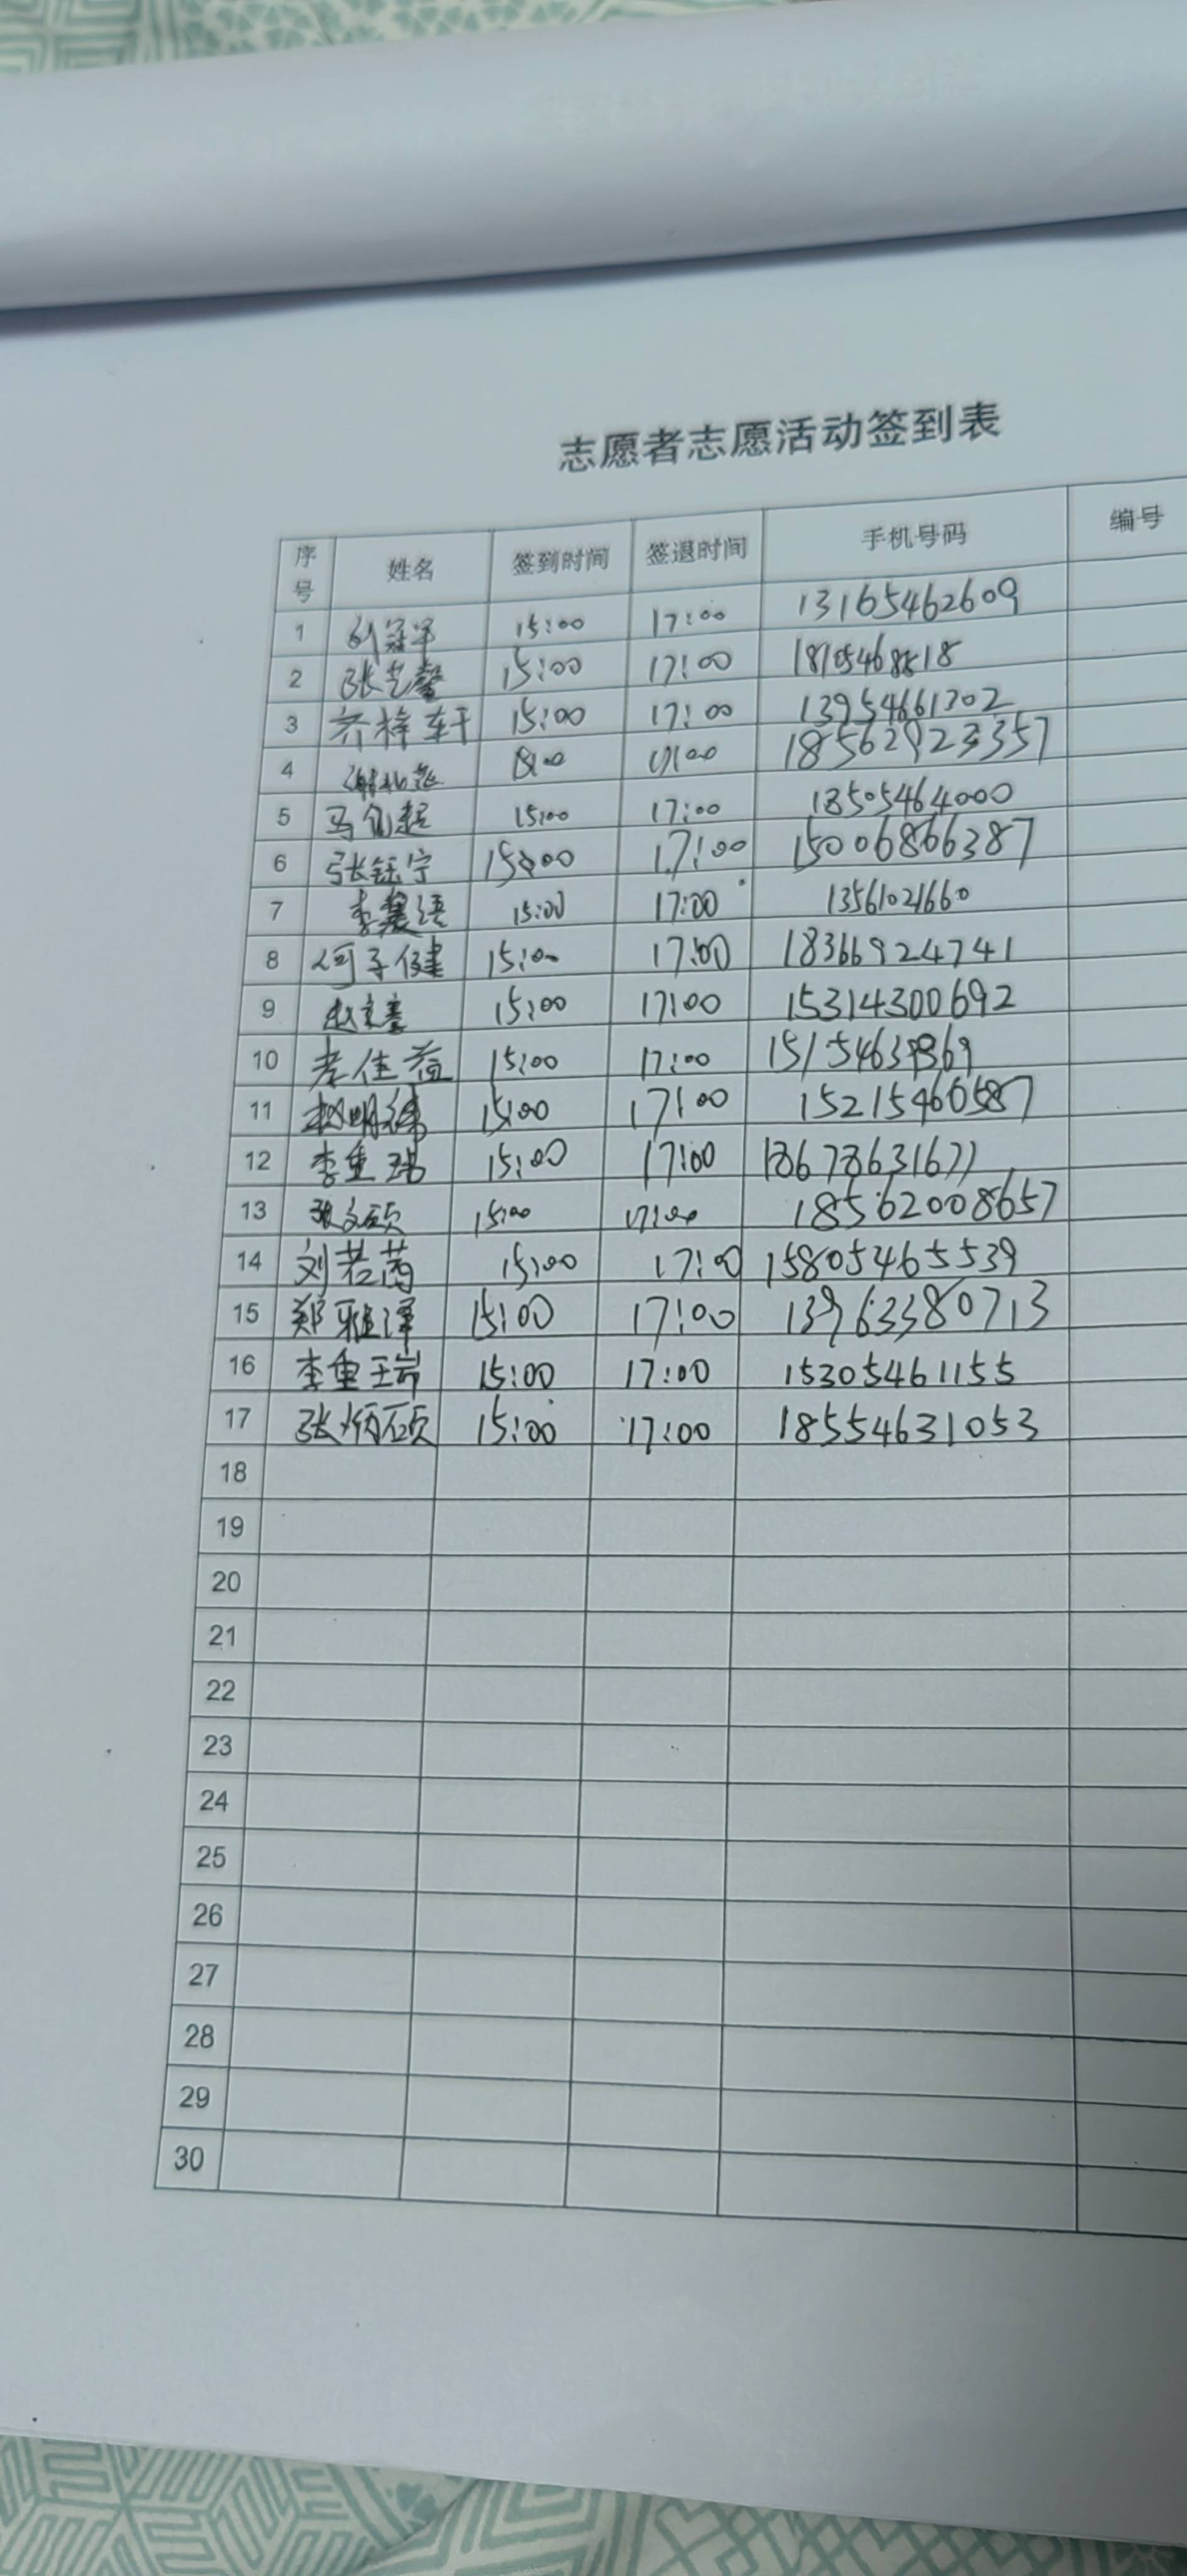 志愿者志愿活动签到表
序号 姓名 签到时间 签退时间 手机号码 编号
1 刘冠军 15:00 17:00 13165462609
2 张艺馨 15:00 17:00 18105468818
3 齐梓轩 15:00 17:00 13954661302
4 18562923357
5 马 超 15:00 17:00 13505464000
6 张钰宁 15:00 17:00 15006866387
7 李 语 15:00 17:00 13561021660
8 何子健 15:00 17:00 18366924741
9 赵 15:00 17:00 15314300692
10 李佳益 15:00 17:00
11 赵明 15:00 17:00 15215460587
12 李重 15:00 17:00 18678631677
13 张文硕 15:00 17:00 18562008657
14 刘若茜 15:00 17:00 15805465539
15 郑雅泽 15:00 17:00 13963380713
16 李重瑞 15:00 17:00 15305461155
17 张炳硕 15:00 17:00 18554631053
18
19
20
21
22
23
24
25
26
27
28
29
30